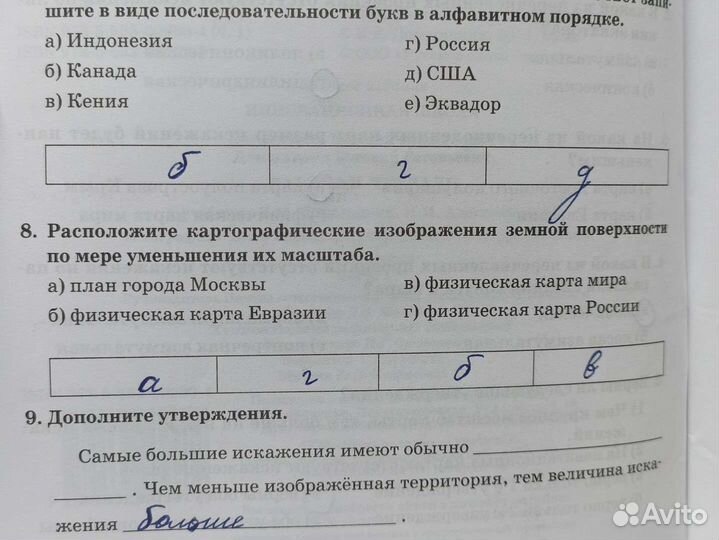 шите в виде последовательности букв в алфавитном порядке.
а) Индонезия г) Россия
б) Канада д) США
в) Кения е) Эквадор
б г д
8. Расположите картографические изображения земной поверхности
по мере уменьшения их масштаба.
а) план города Москвы в) физическая карта мира
б) физическая карта Евразии г) физическая карта России
а г б в
9. Дополните утверждения.
Самые большие искажения имеют обычно
. Чем меньше изображённая территория, тем величина иска-
жения больше .
Avito